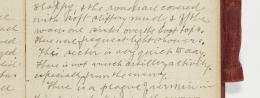 sloppy & the roads are covered
with soft slippery mud & off the
ways one sinks over the boot tops.
There are frequent light showers.
This sector is very quiet to-day.
There is not much artillery activity,
especially from the enemy.
There is a plague of vermin in